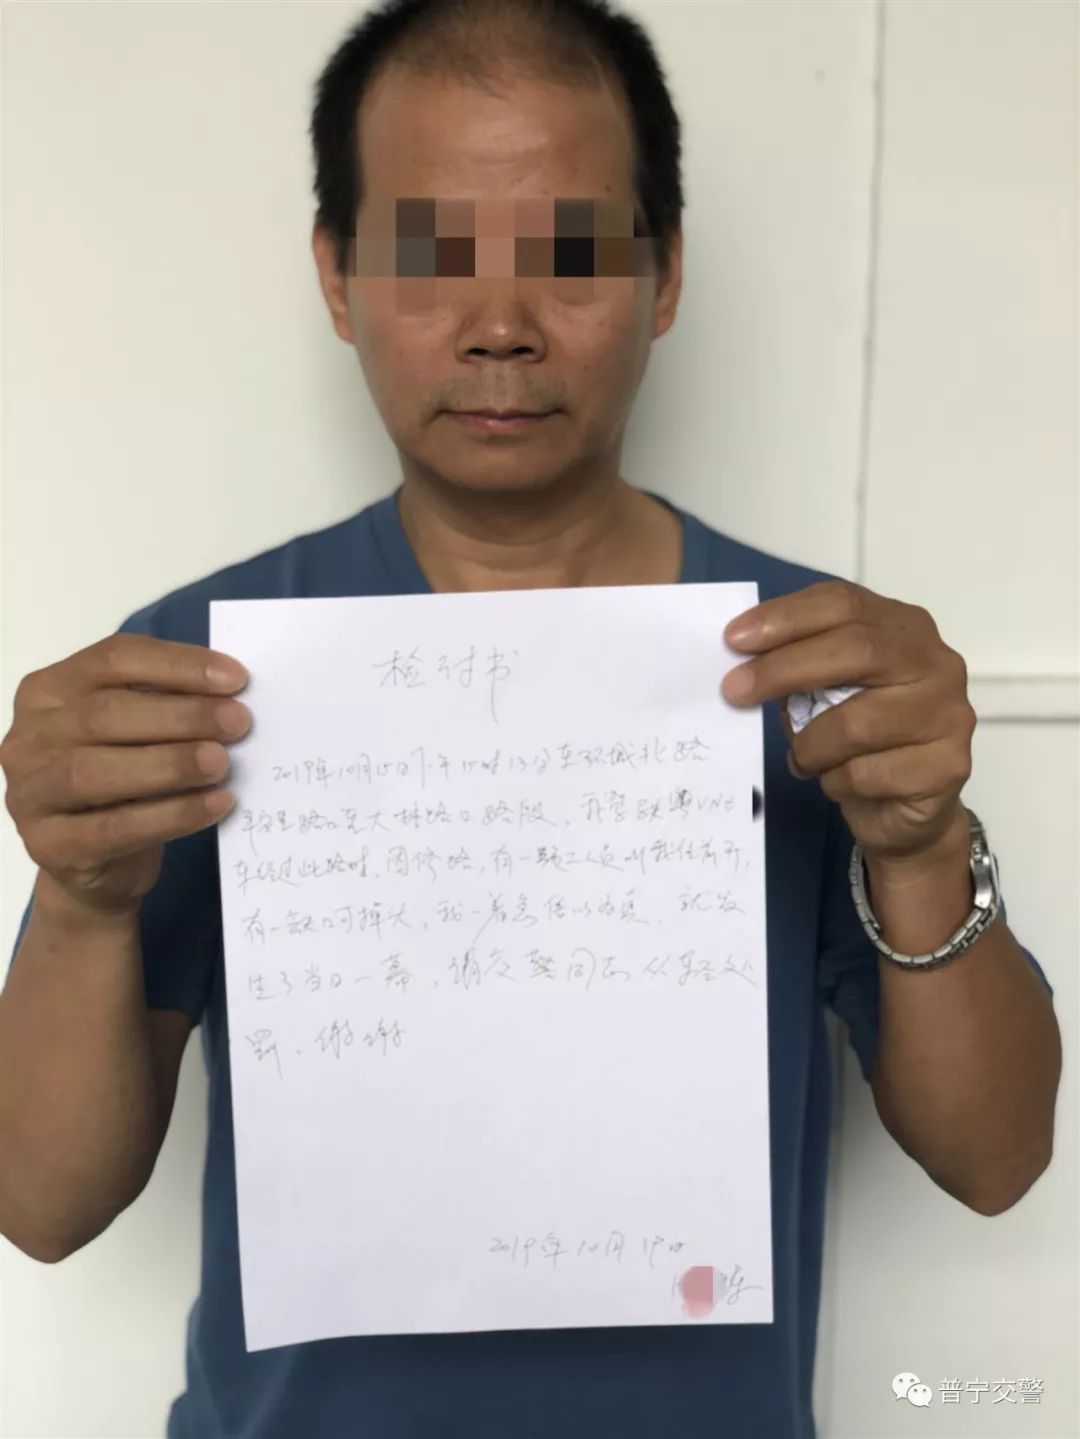 检讨书
2019年10月15日下午15时13分在环城北路
路口至大林路口路段，我驾驶粤VNE
车经过此路时，因修路，有一施工人员叫我往前开，
有一缺口可掉头，我一着急信以为真，就发
生了当日一幕，请交警同志从轻处
罚、谢谢
2019年10月19日
普宁交警